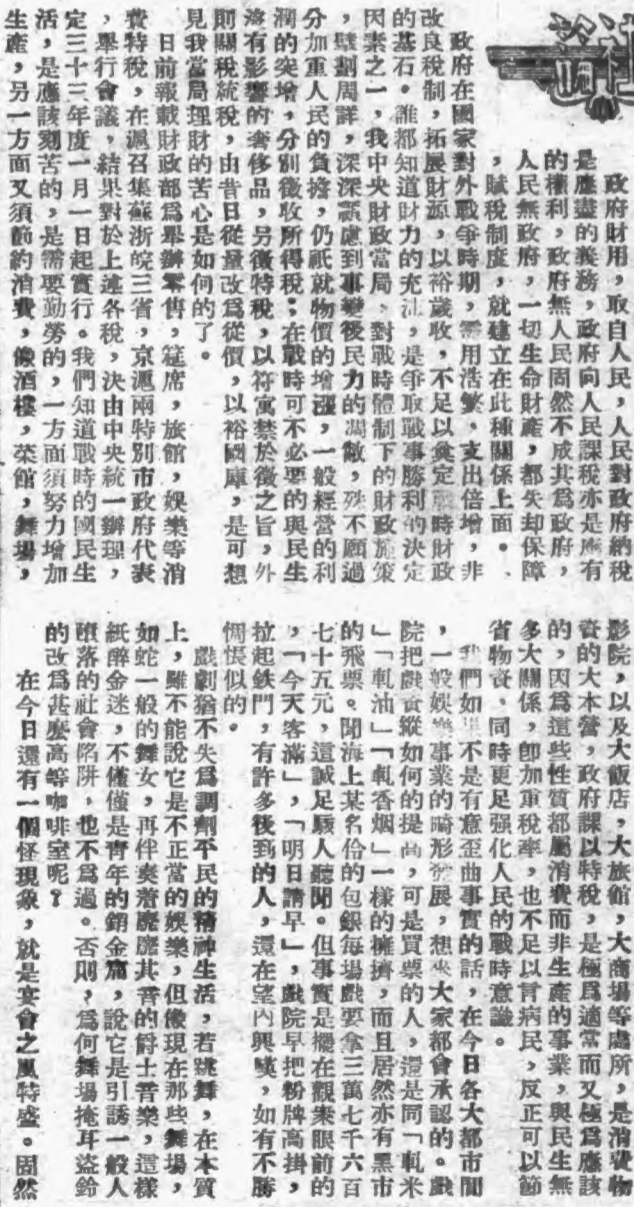 社論
政府財用，取自人民，人民對政府納稅
是應盡的義務，政府向人民課稅亦是應有
的權利，政府無人民固然不成其為政府，
人民無政府，一切生命財產，都失却保障
，賦稅制度，就建立在此種關係上面。
政府在國家對外戰爭時期，需用浩繁，支出倍增，非
改良稅制，拓展財源，以裕歲收，不足以奠定戰時財政
的基石。誰都知道財力的充沛，是爭取戰事勝利的決定
因素之一，我中央財政當局，對戰時體制下的財政施策
，擘劃周詳，深深顧慮到事變後民力的凋敝，殊不願過
分加重人民的負擔，仍祇就物價的增漲，一般經營的利
潤的突增，分別徵收所得稅；在戰時可不必要的與民生
有影響的奢侈品，另徵特稅，以符寓禁於徵之旨，外
則關稅統稅，由昔日從量改為從價，以裕國庫，是可想
見我當局理財的苦心是如何的了。
日前報載財政部為舉辦零售，筵席，旅館，娛樂等消
費特稅，在滬召集蘇浙皖三省，京滬兩特別市政府代表
，舉行會議，結果對於上述各稅，決由中央統一辦理，
定三十三年度一月一日起實行。我們知道戰時的國民生
活，是應該刻苦的，是需要勤勞的，一方面須努力增加
生產，另一方面又須節約消費，像酒樓，菜館，舞場，
影院，以及大飯店，大旅館，大商場等處所，是消費物
資的大本營，政府課以特稅，是極為適當而又極為應該
的，因為這些性質都屬消費而非生產的事業，與民生無
多大關係，卽加重稅率，也不足以言病民，反正可以節
省物資，同時更足强化人民的戰時意識。
我們如果不是有意歪曲事實的話，在今日各大都市間
，一般娛樂事業的畸形發展，想來大家都會承認的。戲
院把戲資縱如何的提高，可是買票的人，還是同「軋米
」「軋油」「軋香烟」一樣的擁擠，而且居然亦有黑市
的飛票。聞海上某名伶的包銀每場戲要拿三萬七千六百
七十五元，這誠足駭人聽聞。但事實是擺在觀衆眼前的
，「今天客滿」，「明日請早」，戲院早把粉牌高掛，
拉起鉄門，有許多後到的人，還在望內興嘆，如有不勝
惆悵似的。
戲劇猶不失為調劑平民的精神生活，若跳舞，在本質
上，雖不能說它是不正當的娛樂，但像現在那些舞場，
如蛇一般的舞女，再伴奏着靡靡其音的爵士音樂，這樣
紙醉金迷，不僅僅是青年的銷金窟，說它是引誘一般人
墮落的社會陷阱，也不為過。否則，為何舞場掩耳盜鈴
的改為甚麼高等咖啡室呢？
在今日還有一個怪現象，就是宴會之風特盛。固然